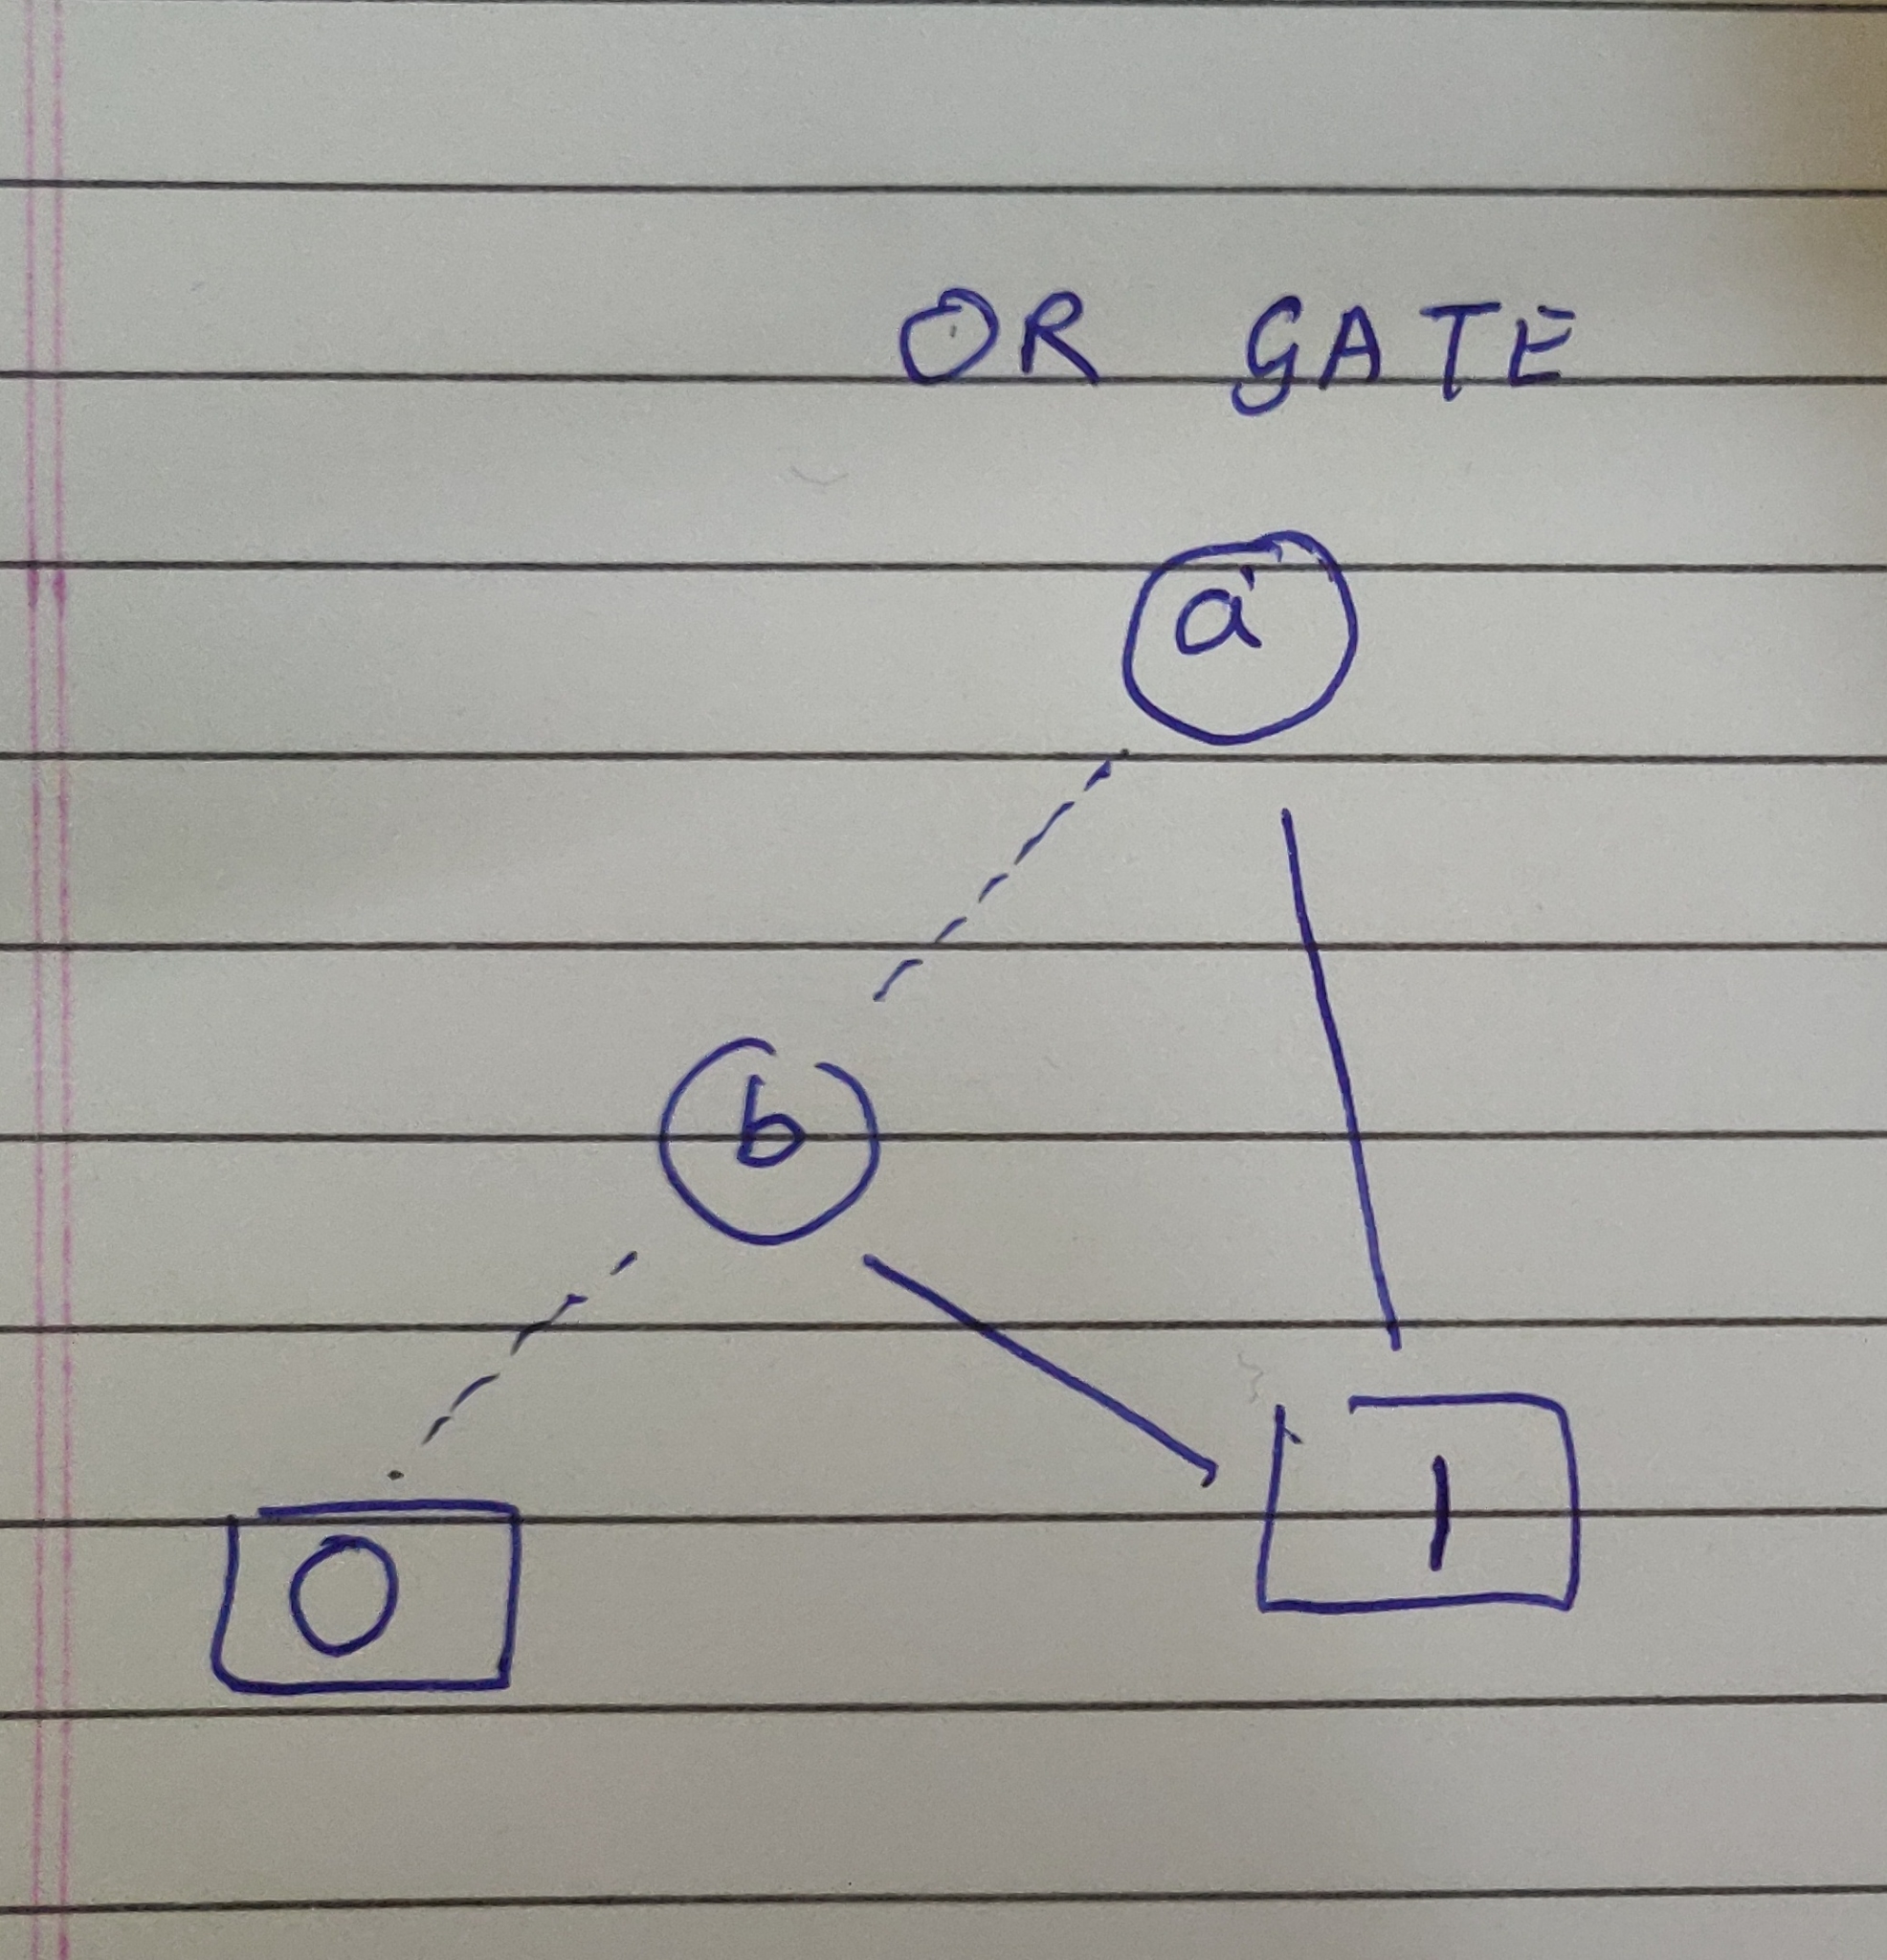 OR GATE
a
b
0
1